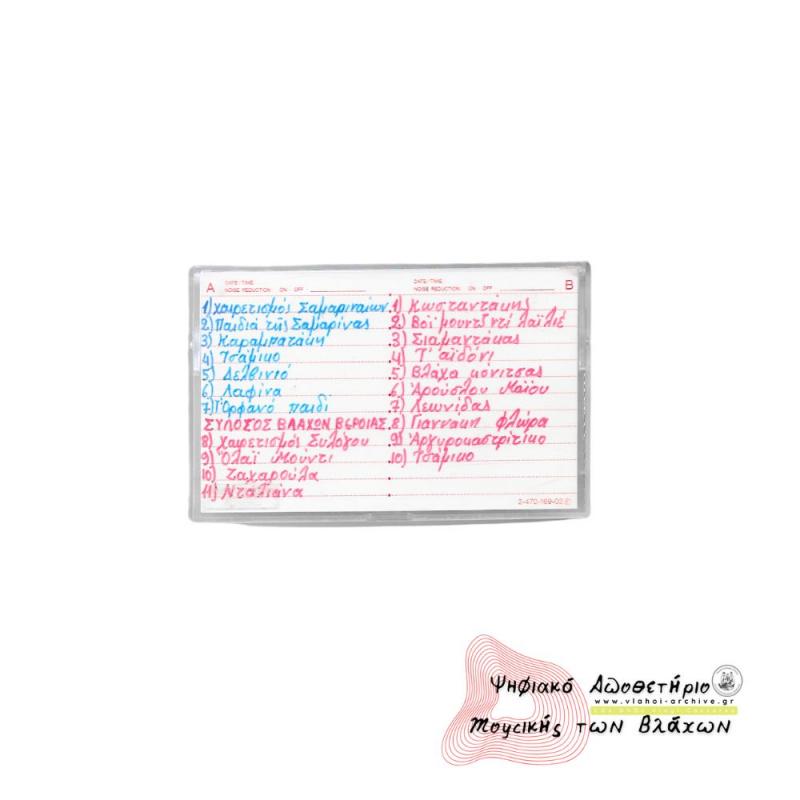 A DATE / TIME
NOISE REDUCTION ON OFF
1) Χαιρετισμός Σαμαριναίων
2) Παιδιά τῆς Σαμαρίνας
3) Καραμπατάκη
4) Τσάμικο
5) Δελβινιό
6) Λαφίνα
7) Ὀρφανό παιδί
ΣΥΛΟΓΟΣ ΒΛΑΧΩΝ ΒΕΡΟΙΑΣ
8) Χαιρετισμός Συλόγου
9) Ὀλάϊ Μούντι
10) Ζαχαρούλα
11) Νταλιάνα
DATE / TIME B
NOISE REDUCTION ON OFF
1) Κωσταντάκης
2) Βοϊ μουντζντί λαϊλιέ
3) Σιαμαντάκας
4) Τ' αϊδόνι
5) Βλάχα κόνιτσας
6) Ἀρούσλου Μαΐου
7) Λεωνίδας
8) Γιαννακη φλώρα
9) Ἀργυροκαστρίτικο
10) Τσάμικο
2-470-169-02
Ψηφιακό Αποθετήριο
www.vlahoi-archive.gr
Μουσικής των Βλάχων